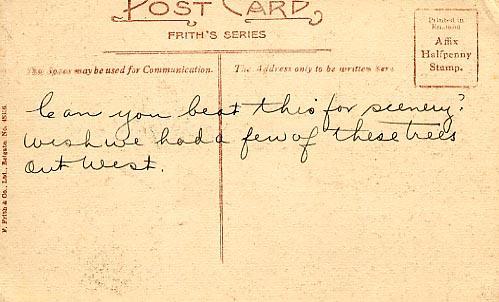 POST CARD
FRITH'S SERIES
Printed in
England
Affix
Halfpenny
Stamp.
This Space may be used for Communication.
The Address only to be written here
Can you beat this for scenery?
Wish we had a few of these trees
out West.
F. Frith & Co., Ltd., Reigate. No.